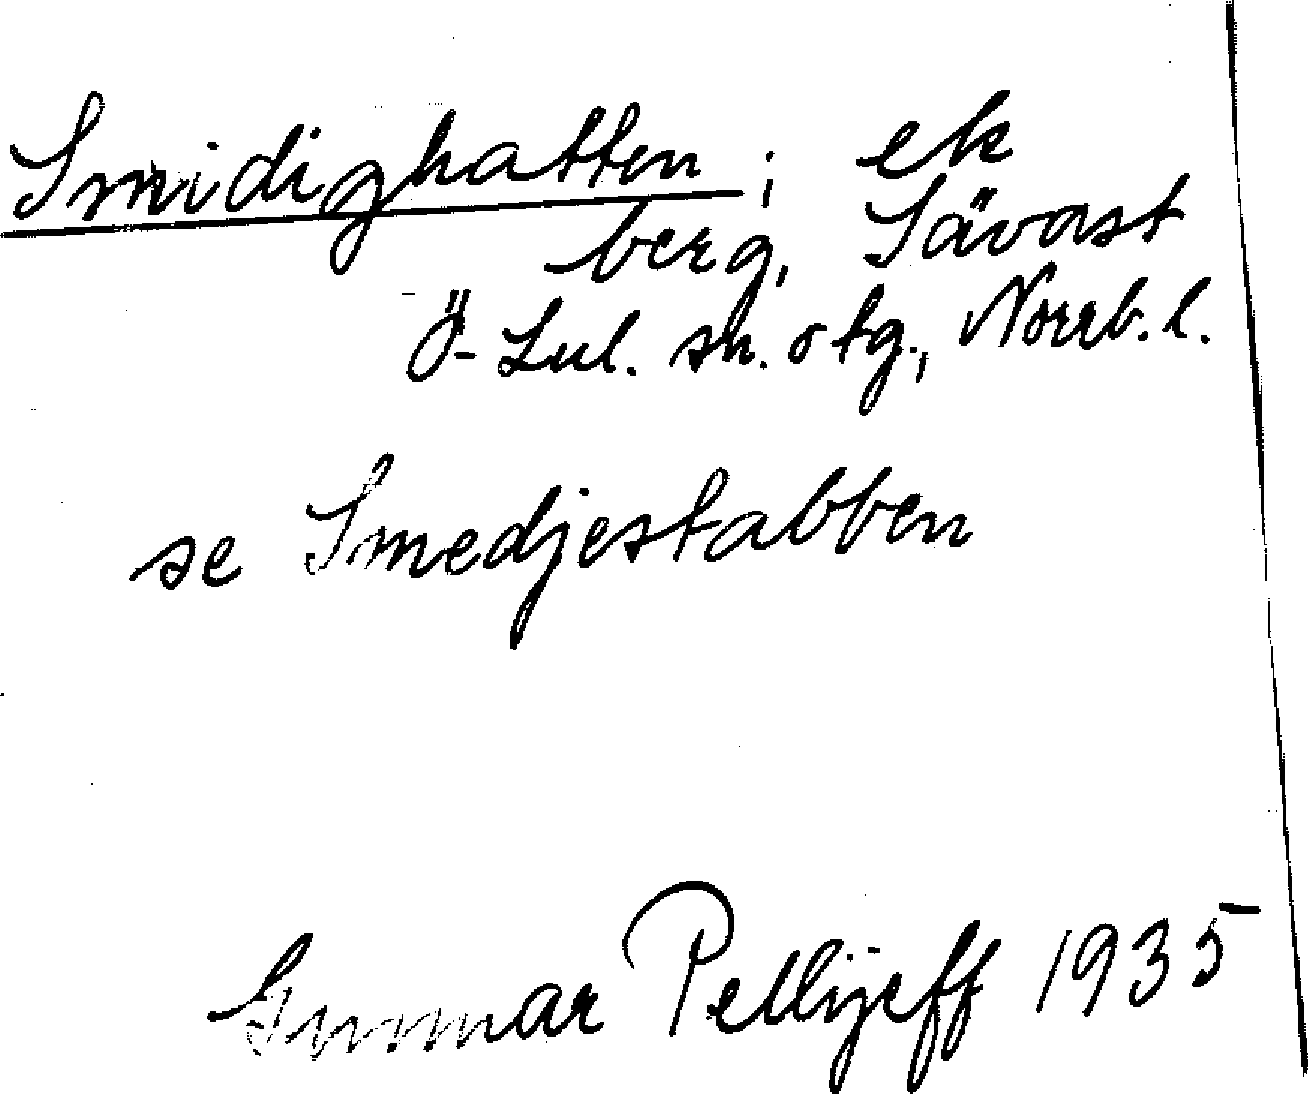 Smidighatten; ek
berg, Sävast
Ö-Lul. sn. o tg., Norrb. l.
se Smedjestabben
Gunnar Pellijeff 1935